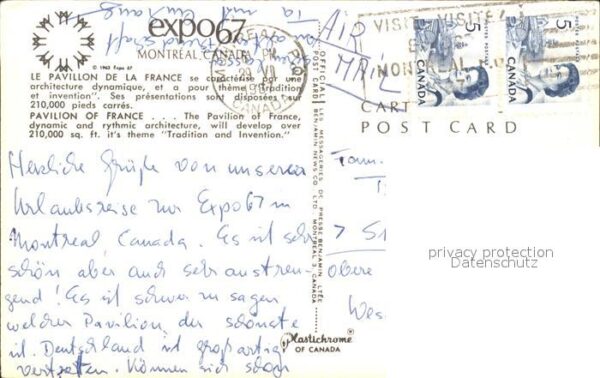 expo67
MONTRÉAL, CANADA
© 1963 Expo 67
LE PAVILLON DE LA FRANCE se caractérise par une
architecture dynamique, et a pour thème "Tradition et
invention". Ses présentations sont disposées sur
210,000 pieds carrés.
PAVILION OF FRANCE . . . The Pavilion of France,
dynamic and rythmic architecture, will develop over
210,000 sq. ft. it's theme "Tradition and Invention".
Herzliche Grüße von unserer
Urlaubsreise zur Expo67 in
Montreal Canada. Es ist sehr
schön aber auch sehr anstren-
gend! Es ist schwer zu sagen
welcher Pavilion der schönste
ist. Deutschland ist großartig
vertreten. Können sich schon
OFFICIAL POST CARD
LES MESSAGERIES DE PRESSE BENJAMIN LTÉE
BENJAMIN NEWS CO. LTD. MONTREAL 3, CANADA
Plastichrome
OF CANADA
AIR
MAIL
VISIT
MONTREAL
CANADA
5
CANADA
5
CANADA
POSTES POSTAGE
CART
POST CARD
Fam.
7 St
obere
Wes
privacy protection
Datenschutz